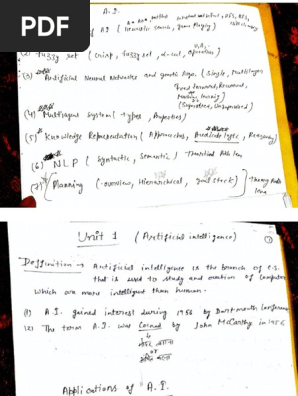 PDF
A.I.
(Heuristic Search, Game Playing)
(2) fuzzy set (crisp, fuzzy set, α-cut, operations)
(3) Artificial Neural Networks and genetic Algo. (Single, Multilayer
Feed forward, Recurrent,
(Supervised, Unsupervised)
(4) Multiagent System (types, Properties)
(5) Knowledge Representation (Approaches, Predicate logic, Reasoning)
(6) NLP (Syntactic, Semantic) Theoritical Problem
(7) Planning (overview, Hierarchical, goal stack)
Unit 1 (Artificial intelligence)
Deffinition → Artificial intelligence is the branch of C.S.
that is used to study and creation of Computer
which are more intelligent than human.
(1) A.I. gained interest during 1956 by Dartmouth Conference
(2) The term A.I. was Coined by John McCarthy in 1956
Applications of A.I.